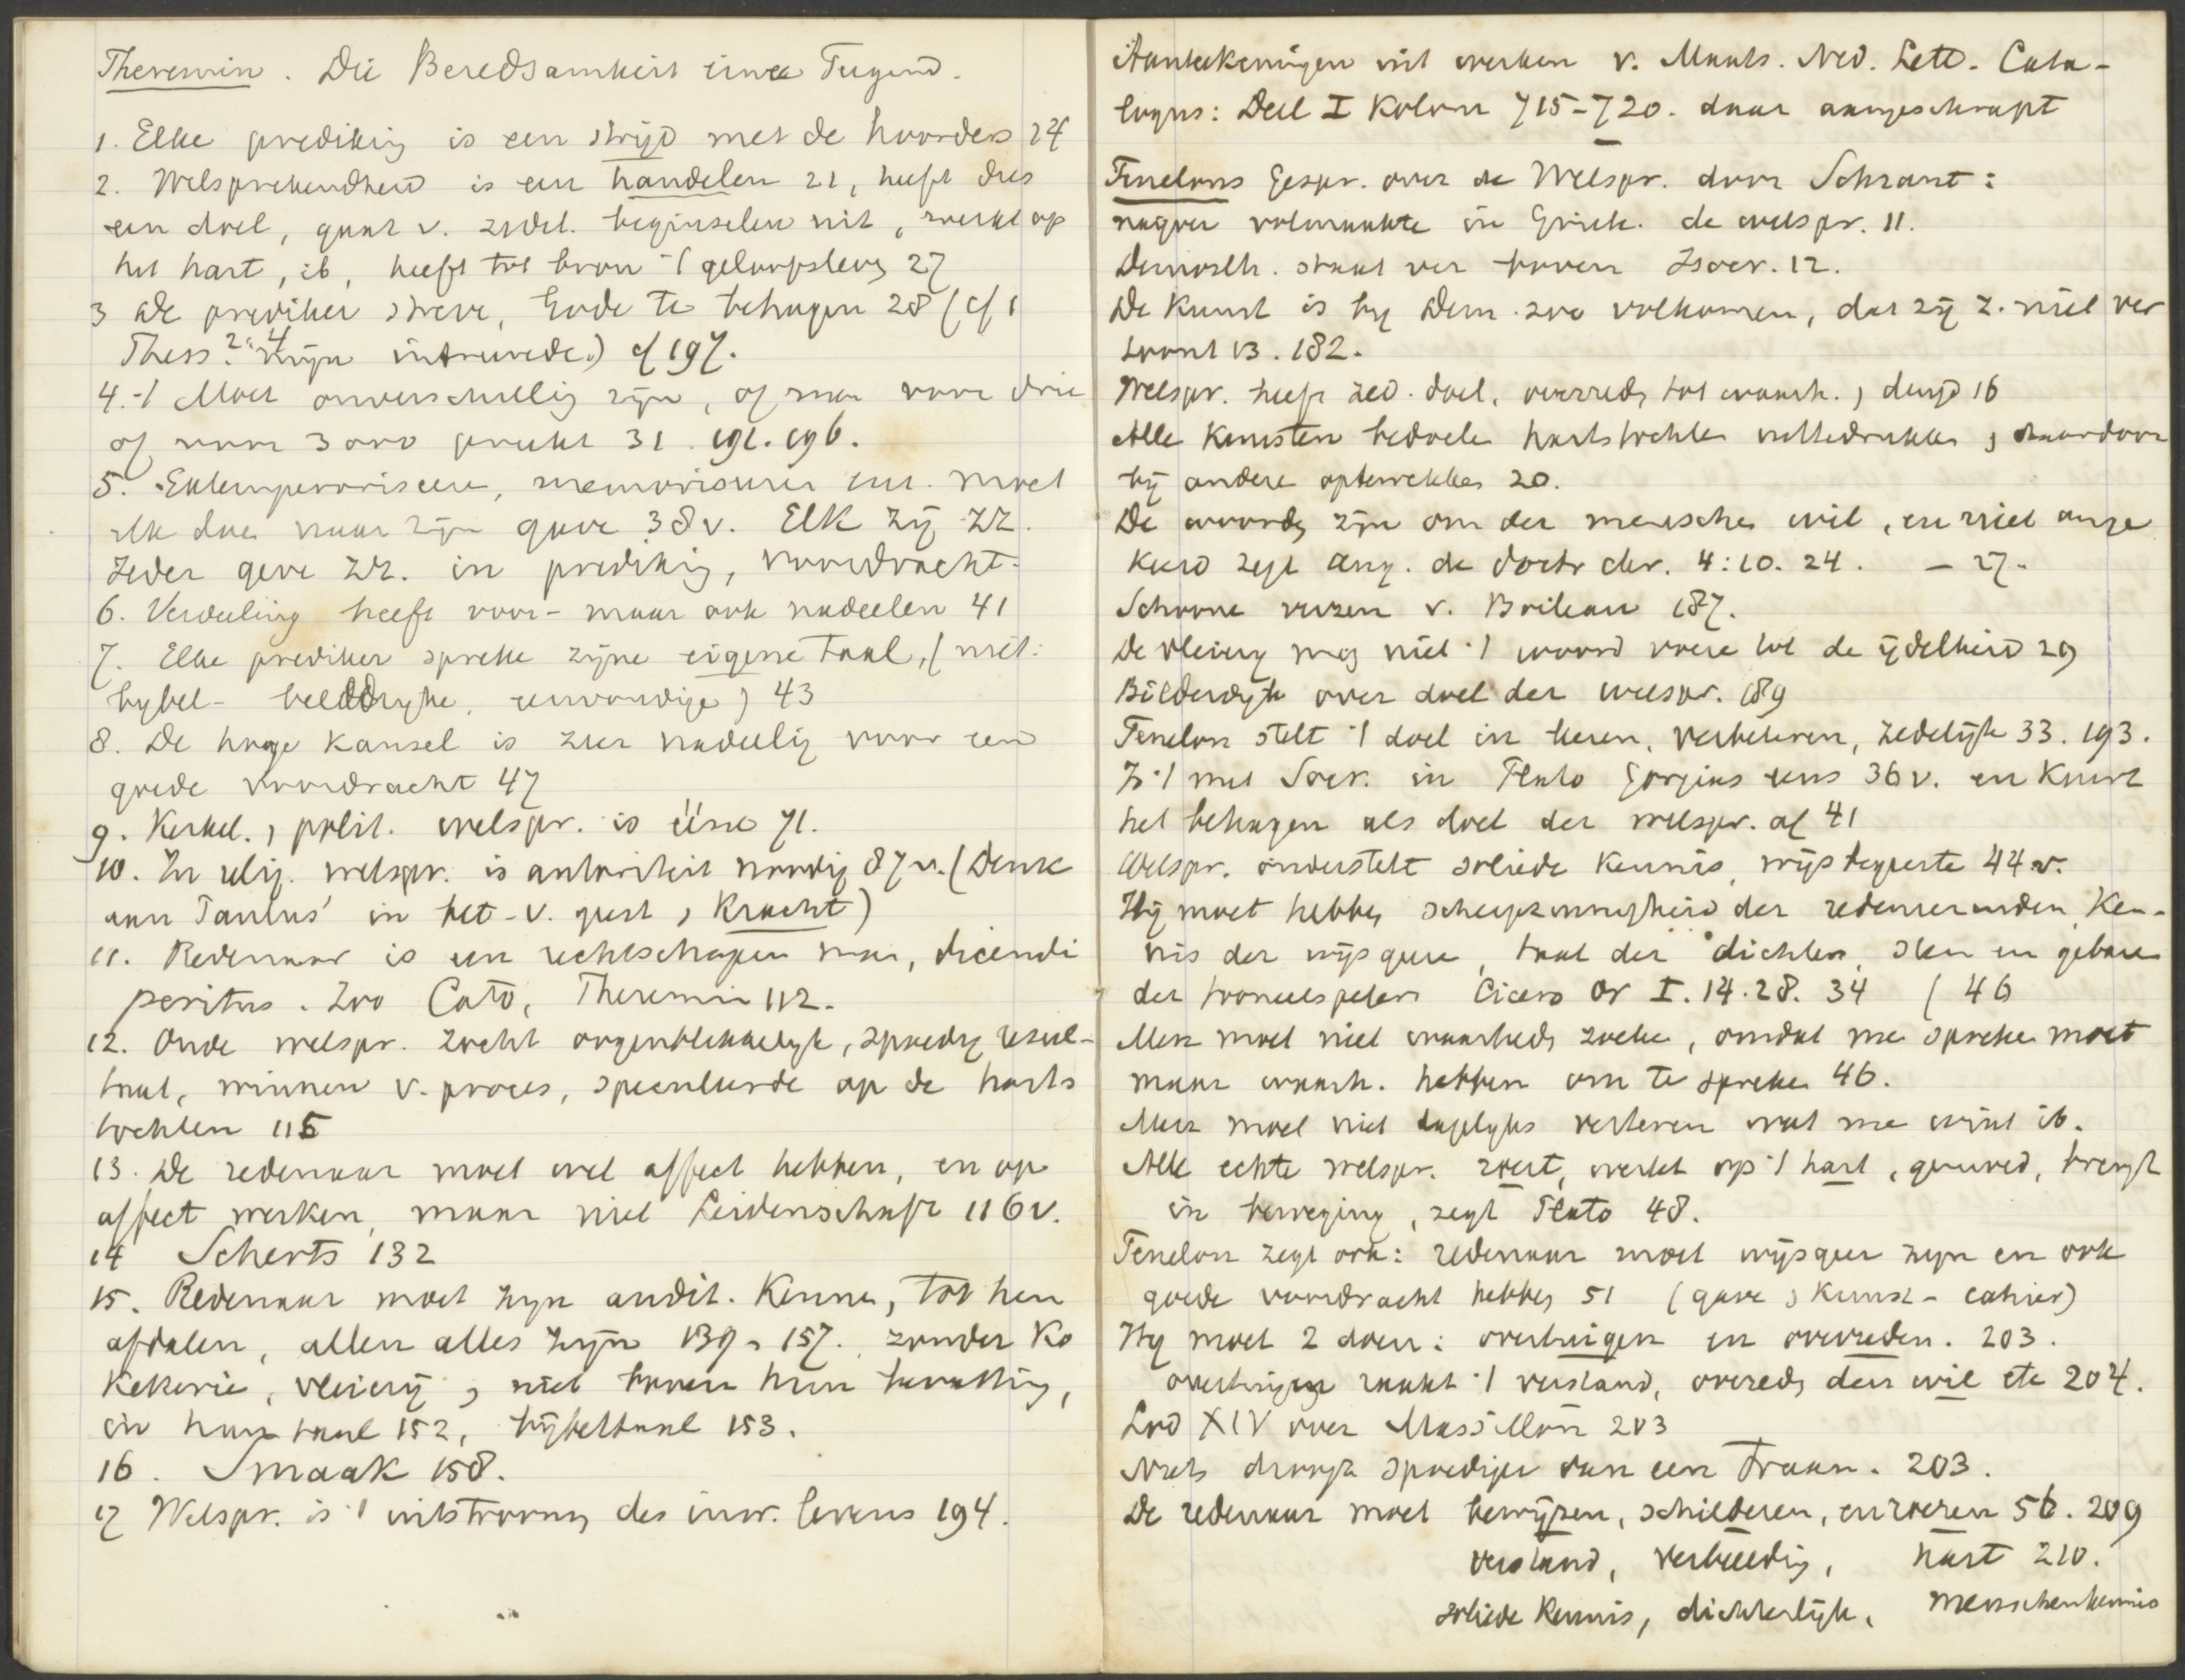 Theremin. Die Beredsamkeit eine Tugend.
1. Elke prediking is een strijd met de hoorders 24
2. Welsprekendheid is een handelen 21, heeft dus
een doel, gaat v. zedel. beginselen uit, werkt op
het hart, ib, heeft tot bron 't geloofsleven 27
3 De prediker streve, Gode te behagen 28 (cf 1
Thess. 2:4 mijn intreerede) cf 197.
4. 't Moet onverschillig zijn, of men voor drie
of voor 300 preekt 31. 191. 196.
5. Extemporiseere, memoriseren enz. moet
elk doen naar zijn gave 38v. Elk zij zz.
Ieder geve zz. in prediking, voordracht.
6. Verdeeling heeft voor- maar ook nadeelen 41
7. Elke prediker spreke zijne eigene taal, (niet:
bybel- beeldryke, eenvoudige) 43
8. De hooge kansel is zeer nadeelig voor een
goede voordracht 47
9. Kerkel. , polit. welspr. is ééne 71.
10. In relig. welspr. is autoriteit noodig 87v. (Denk
aan Paulus' in bet. v. geest , kracht)
11. Redenaar is een rechtschapen man, dicendi
peritus. Zoo Cato, Theremin 112.
12. Oude welspr. zocht oogenblikkelyk, spoedig resul-
taat, winnen v. proces, speculeerde op de harts
tochten 115
13. De redenaar moet wel affect hebben, en op
affect werken, maar niet Leidenschaft 116v.
14 Scherts 132
15. Redenaar moet zyn audit. kennen, tot hen
afdalen, allen alles zijn 139, 157. zonder Ko
kekerie, vleierij , niet boven hun bevatting,
in hun taal 152, bijbeltaal 153.
16. Smaak 158.
17 Welspr. is 't uitstrooming des inw. levens 194.
Aanteekeningen uit werken v. Maats. Ned. Lett. Cata-
logus: Deel I Kolom 715-720. daar aangeschrapt
Fenelons Gespr. over de Welspr. door Schrant:
nagver volmaakte in Griek. de welspr. 11.
Demosth. staat ver boven Isocr. 12.
De kunst is by Dem. zoo volkomen, dat zij z. niet ver
toont 13. 182.
Welspr. heeft zed. doel, overreding tot waarh. , deugd 16
Alle kunsten bedoelen hartstochten uittedrukken , daardoor
bij andere optewekken 20.
De woorden zijn om der menschen wil, en niet omge
keerd zegt Aug. de doctr chr. 4:10. 24. - 27.
Schoone verzen v. Boileau 187.
De vleiery mag niet 't woord voere tot de ijdelheid 29
Bilderdyk over doel der welspr. 189
Fenelon stelt 't doel in leeren, verbeteren, zedelijk 33. 193.
Is 't met Socr. in Plato Gorgias eens 36v. en keurt
het behagen als doel der welspr. af 41
Welspr. onderstelt soliede kennis, wijsbegeerte 44v.
Hij moet hebben scherpzinnigheid der redeneerenden, ken-
nis der wijsgeeren, taal der dichters, stem en gebaren
der tooneelspelers Cicero Or I. 14. 28. 34 ( 46
Men moet niet waarheden zoeken, omdat men spreken moet
maar waarh. hebben om te spreken 46.
Men moet niet dagelyks verteren wat men wint ib.
Alle echte welspr. roert, werkt op 't hart, gemoed, brengt
in beweging, zegt Plato 48.
Fenelon zegt ook: redenaar moet wijsgeer zyn en ook
goede voordracht hebben 51 (gave , kunst - cahier)
Hy moet 2 doen: overtuigen en overreden. 203.
overtuiging raakt 't verstand, overreding den wil etc 204.
Lod XIV over Massillon 203
Niets droogt spoediger dan een Traan. 203.
De redenaar moet bewijzen, schilderen, en roeren 56. 209
verstand, verbeelding, hart 210.
soliede kennis, dichterlijk, menschenkennis